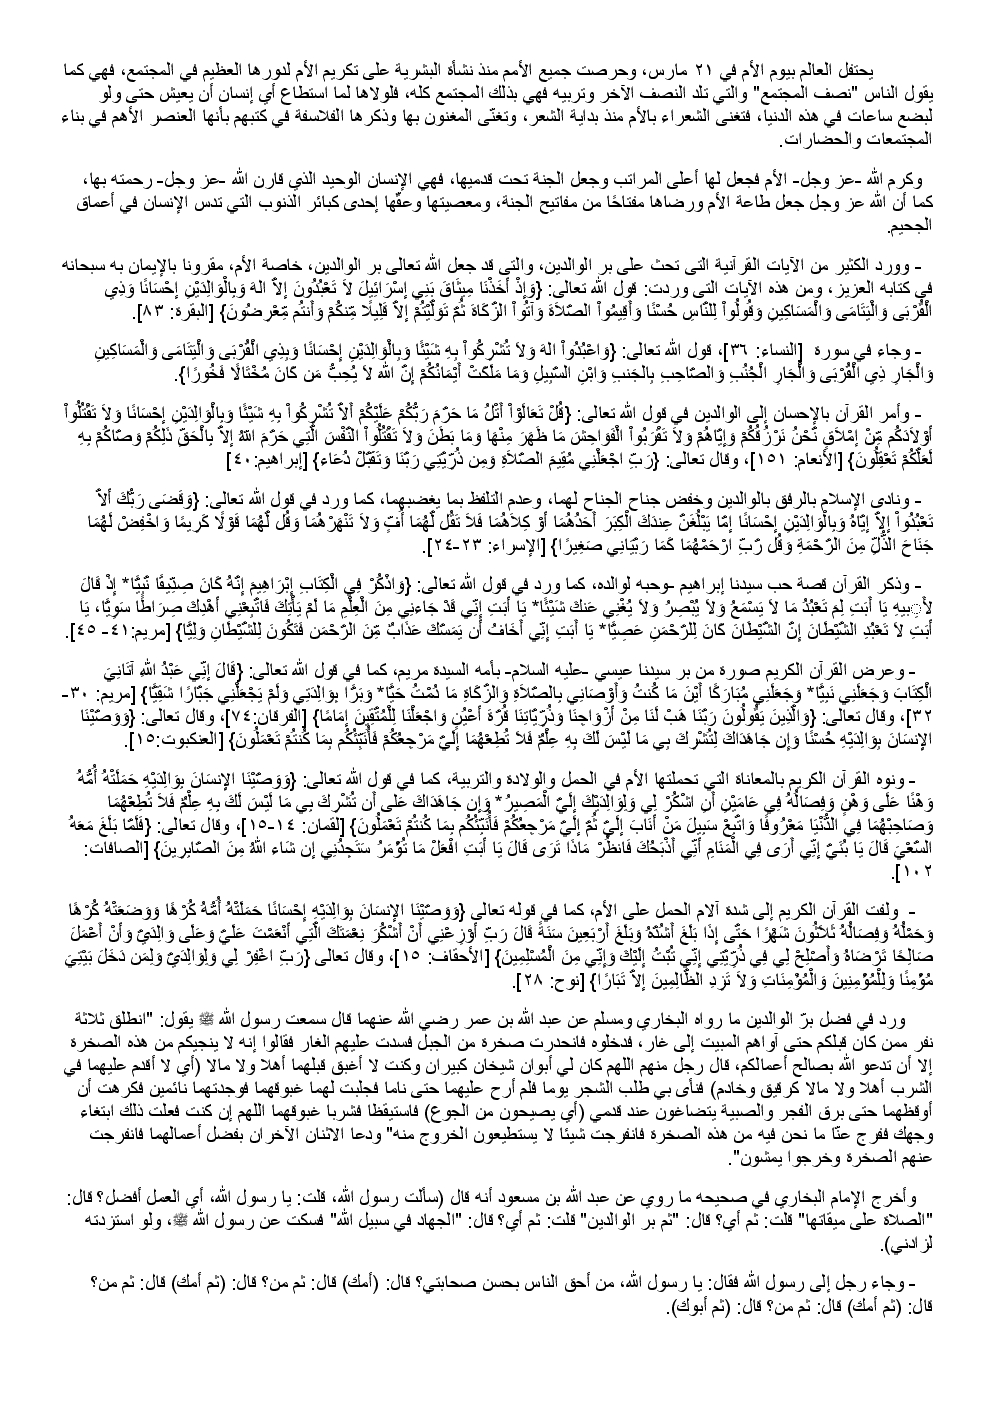 يحتفل العالم بيوم الأم في ٢١ مارس، وحرصت جميع الأمم منذ نشأة البشرية على تكريم الأم لدورها العظيم في المجتمع، فهي كما
يقول الناس "نصف المجتمع" والتي تلد النصف الآخر وتربيه فهي بذلك المجتمع كله، فلولاها لما استطاع أي إنسان أن يعيش حتى ولو
لبضع ساعات في هذه الدنيا، فتغنى الشعراء بالأم منذ بداية الشعر، وتغنّى المغنون بها وذكرها الفلاسفة في كتبهم بأنها العنصر الأهم في بناء
المجتمعات والحضارات.
وكرم الله -عز وجل- الأم فجعل لها أعلى المراتب وجعل الجنة تحت قدميها، فهي الإنسان الوحيد الذي قارن الله -عز وجل- رحمته بها،
كما أن الله عز وجل جعل طاعة الأم ورضاها مفتاحًا من مفاتيح الجنة، ومعصيتها وعقّها إحدى كبائر الذنوب التي تدس الإنسان في أعماق
الجحيم.
- وورد الكثير من الآيات القرآنية التى تحث على بر الوالدين، والتى قد جعل الله تعالى بر الوالدين، خاصة الأم، مقرونا بالإيمان به سبحانه
في كتابه العزيز، ومن هذه الآيات التى وردت: قول الله تعالى: {وَإِذْ أَخَذْنَا مِيثَاقَ بَنِي إِسْرَائِيلَ لاَ تَعْبُدُونَ إِلاَّ اللهَ وَبِالْوَالِدَيْنِ إِحْسَانًا وَذِي
الْقُرْبَى وَالْيَتَامَى وَالْمَسَاكِينِ وَقُولُواْ لِلنَّاسِ حُسْنًا وَأَقِيمُواْ الصَّلاَةَ وَآتُواْ الزَّكَاةَ ثُمَّ تَوَلَّيْتُمْ إِلاَّ قَلِيلًا مِّنكُمْ وَأَنتُم مِّعْرِضُونَ} [البقرة: ٨٣].
- وجاء في سورة [النساء: ٣٦]، قول الله تعالى: {وَاعْبُدُواْ اللهَ وَلاَ تُشْرِكُواْ بِهِ شَيْئًا وَبِالْوَالِدَيْنِ إِحْسَانًا وَبِذِي الْقُرْبَى وَالْيَتَامَى وَالْمَسَاكِينِ
وَالْجَارِ ذِي الْقُرْبَى وَالْجَارِ الْجُنُبِ وَالصَّاحِبِ بِالجَنبِ وَابْنِ السَّبِيلِ وَمَا مَلَكَتْ أَيْمَانُكُمْ إِنَّ اللهَ لاَ يُحِبُّ مَن كَانَ مُخْتَالًا فَخُورًا}.
- وأمر القرآن بالإحسان إلى الوالدين في قول الله تعالى: {قُلْ تَعَالَوْاْ أَتْلُ مَا حَرَّمَ رَبُّكُمْ عَلَيْكُمْ أَلاَّ تُشْرِكُواْ بِهِ شَيْئًا وَبِالْوَالِدَيْنِ إِحْسَانًا وَلاَ تَقْتُلُواْ
أَوْلاَدَكُم مِّنْ إمْلاَقٍ نَّحْنُ نَرْزُقُكُمْ وَإِيَّاهُمْ وَلاَ تَقْرَبُواْ الْفَوَاحِشَ مَا ظَهَرَ مِنْهَا وَمَا بَطَنَ وَلاَ تَقْتُلُواْ النَّفْسَ الَّتِي حَرَّمَ اللهُ إِلاَّ بِالْحَقِّ ذَلِكُمْ وَصَّاكُمْ بِهِ
لَعَلَّكُمْ تَعْقِلُونَ} [الأنعام: ١٥١]، وقال تعالى: {رَبِّ اجْعَلْنِي مُقِيمَ الصَّلاَةِ وَمِن ذُرِّيَّتِي رَبَّنَا وَتَقَبَّلْ دُعَاء} [إبراهيم:٤٠]
- ونادى الإسلام بالرفق بالوالدين وخفض جناح الجناح لهما، وعدم التلفظ بما يغضبهما، كما ورد في قول الله تعالى: {وَقَضَى رَبُّكَ أَلاَّ
تَعْبُدُواْ إِلاَّ إِيَّاهُ وَبِالْوَالِدَيْنِ إِحْسَانًا إِمَّا يَبْلُغَنَّ عِندَكَ الْكِبَرَ أَحَدُهُمَا أَوْ كِلاَهُمَا فَلاَ تَقُل لَّهُمَا أُفٍّ وَلاَ تَنْهَرْهُمَا وَقُل لَّهُمَا قَوْلًا كَرِيمًا وَاخْفِضْ لَهُمَا
جَنَاحَ الذُّلِّ مِنَ الرَّحْمَةِ وَقُل رَّبِّ ارْحَمْهُمَا كَمَا رَبَّيَانِي صَغِيرًا} [الإسراء: ٢٣-٢٤].
- وذكر القرآن قصة حب سيدنا إبراهيم -وحبه لوالده، كما ورد في قول الله تعالى: {وَاذْكُرْ فِي الْكِتَابِ إِبْرَاهِيمَ إِنَّهُ كَانَ صِدِّيقًا نَّبِيًّا* إِذْ قَالَ
لِأَبِيهِ يَا أَبَتِ لِمَ تَعْبُدُ مَا لاَ يَسْمَعُ وَلاَ يُبْصِرُ وَلاَ يُغْنِي عَنكَ شَيْئًا* يَا أَبَتِ إِنِّي قَدْ جَاءنِي مِنَ الْعِلْمِ مَا لَمْ يَأْتِكَ فَاتَّبِعْنِي أَهْدِكَ صِرَاطًا سَوِيًّا، يَا
أَبَتِ لاَ تَعْبُدِ الشَّيْطَانَ إِنَّ الشَّيْطَانَ كَانَ لِلرَّحْمَنِ عَصِيًّا* يَا أَبَتِ إِنِّي أَخَافُ أَن يَمَسَّكَ عَذَابٌ مِّنَ الرَّحْمَن فَتَكُونَ لِلشَّيْطَانِ وَلِيًّا} [مريم:٤١- ٤٥].
- وعرض القرآن الكريم صورة من بر سيدنا عيسي -عليه السلام- بأمه السيدة مريم، كما في قول الله تعالى: {قَالَ إِنِّي عَبْدُ اللهِ آتَانِيَ
الْكِتَابَ وَجَعَلَنِي نَبِيًّا* وَجَعَلَنِي مُبَارَكًا أَيْنَ مَا كُنتُ وَأَوْصَانِي بِالصَّلاَةِ وَالزَّكَاةِ مَا دُمْتُ حَيًّا* وَبَرًّا بِوَالِدَتِي وَلَمْ يَجْعَلْنِي جَبَّارًا شَقِيًّا} [مريم: ٣٠-
٣٢]، وقال تعالى: {وَالَّذِينَ يَقُولُونَ رَبَّنَا هَبْ لَنَا مِنْ أَزْوَاجِنَا وَذُرِّيَّاتِنَا قُرَّةَ أَعْيُنٍ وَاجْعَلْنَا لِلْمُتَّقِينَ إِمَامًا} [الفرقان:٧٤]، وقال تعالى: {وَوَصَّيْنَا
الإنسَانَ بِوَالِدَيْهِ حُسْنًا وَإِن جَاهَدَاكَ لِتُشْرِكَ بِي مَا لَيْسَ لَكَ بِهِ عِلْمٌ فَلاَ تُطِعْهُمَا إِلَيَّ مَرْجِعُكُمْ فَأُنَبِّئُكُم بِمَا كُنتُمْ تَعْمَلُونَ} [العنكبوت:١٥].
- ونوه القرآن الكريم بالمعاناة التي تحملتها الأم في الحمل والولادة والتربية، كما في قول الله تعالى: {وَوَصَّيْنَا الإِنسَانَ بِوَالِدَيْهِ حَمَلَتْهُ أُمُّهُ
وَهْنًا عَلَى وَهْنٍ وَفِصَالُهُ فِي عَامَيْنِ أَنِ اشْكُرْ لِي وَلِوَالِدَيْكَ إِلَيَّ الْمَصِيرُ* وَإِن جَاهَدَاكَ عَلَى أَن تُشْرِكَ بِي مَا لَيْسَ لَكَ بِهِ عِلْمٌ فَلاَ تُطِعْهُمَا
وَصَاحِبْهُمَا فِي الدُّنْيَا مَعْرُوفًا وَاتَّبِعْ سَبِيلَ مَنْ أَنَابَ إِلَيَّ ثُمَّ إِلَيَّ مَرْجِعُكُمْ فَأُنَبِّئُكُم بِمَا كُنتُمْ تَعْمَلُونَ} [لقمان: ١٤-١٥]، وقال تعالى: {فَلَمَّا بَلَغَ مَعَهُ
السَّعْيَ قَالَ يَا بُنَيَّ إِنِّي أَرَى فِي الْمَنَامِ أَنِّي أَذْبَحُكَ فَانظُرْ مَاذَا تَرَى قَالَ يَا أَبَتِ افْعَلْ مَا تُؤْمَرُ سَتَجِدُنِي إِن شَاء اللهُ مِنَ الصَّابِرِينَ} [الصافات:
١٠٢].
- ولفت القرآن الكريم إلى شدة آلام الحمل على الأم، كما في قوله تعالى {وَوَصَّيْنَا الإِنسَانَ بِوَالِدَيْهِ إِحْسَانًا حَمَلَتْهُ أُمُّهُ كُرْهًا وَوَضَعَتْهُ كُرْهًا
وَحَمْلُهُ وَفِصَالُهُ ثَلاَثُونَ شَهْرًا حَتَّى إِذَا بَلَغَ أَشُدَّهُ وَبَلَغَ أَرْبَعِينَ سَنَةً قَالَ رَبِّ أَوْزِعْنِي أَنْ أَشْكُرَ نِعْمَتَكَ الَّتِي أَنْعَمْتَ عَلَيَّ وَعَلَى وَالِدَيَّ وَأَنْ أَعْمَلَ
صَالِحًا تَرْضَاهُ وَأَصْلِحْ لِي فِي ذُرِّيَّتِي إِنِّي تُبْتُ إِلَيْكَ وَإِنِّي مِنَ الْمُسْلِمِينَ} [الأحقاف: ١٥]، وقال تعالى {رَبِّ اغْفِرْ لِي وَلِوَالِدَيَّ وَلِمَن دَخَلَ بَيْتِيَ
مُؤْمِنًا وَلِلْمُؤْمِنِينَ وَالْمُؤْمِنَاتِ وَلاَ تَزِدِ الظَّالِمِينَ إِلاَّ تَبَارًا} [نوح: ٢٨].
ورد في فضل برّ الوالدين ما رواه البخاري ومسلم عن عبد الله بن عمر رضي الله عنهما قال سمعت رسول الله ﷺ يقول: "انطلق ثلاثة
نفر ممن كان قبلكم حتى آواهم المبيت إلى غار، فدخلوه فانحدرت صخرة من الجبل فسدت عليهم الغار فقالوا إنه لا ينجيكم من هذه الصخرة
إلا أن تدعو الله بصالح أعمالكم، قال رجل منهم اللهم كان لي أبوان شيخان كبيران وكنت لا أغبق قبلهما أهلا ولا مالا (أي لا أقدم عليهما في
الشرب أهلا ولا مالا كرقيق وخادم) فنأى بي طلب الشجر يوما فلم أرح عليهما حتى ناما فجلبت لهما غبوقهما فوجدتهما نائمين فكرهت أن
أوقظهما حتى برق الفجر والصبية يتضاغون عند قدمي (أي يصيحون من الجوع) فاستيقظا فشربا غبوقهما اللهم إن كنت فعلت ذلك ابتغاء
وجهك ففرج عنّا ما نحن فيه من هذه الصخرة فانفرجت شيئا لا يستطيعون الخروج منه" ودعا الاثنان الآخران بفضل أعمالهما فانفرجت
عنهم الصخرة وخرجوا يمشون".
وأخرج الإمام البخاري في صحيحه ما روي عن عبد الله بن مسعود أنه قال (سألت رسول الله، قلت: يا رسول الله، أي العمل أفضل؟ قال:
"الصلاة على ميقاتها" قلت: ثم أي؟ قال: "ثم بر الوالدين" قلت: ثم أي؟ قال: "الجهاد في سبيل الله" فسكت عن رسول الله ﷺ، ولو استزدته
لزادني).
- وجاء رجل إلى رسول الله فقال: يا رسول الله، من أحق الناس بحسن صحابتي؟ قال: (أمك) قال: ثم من؟ قال: (ثم أمك) قال: ثم من؟
قال: (ثم أمك) قال: ثم من؟ قال: (ثم أبوك).